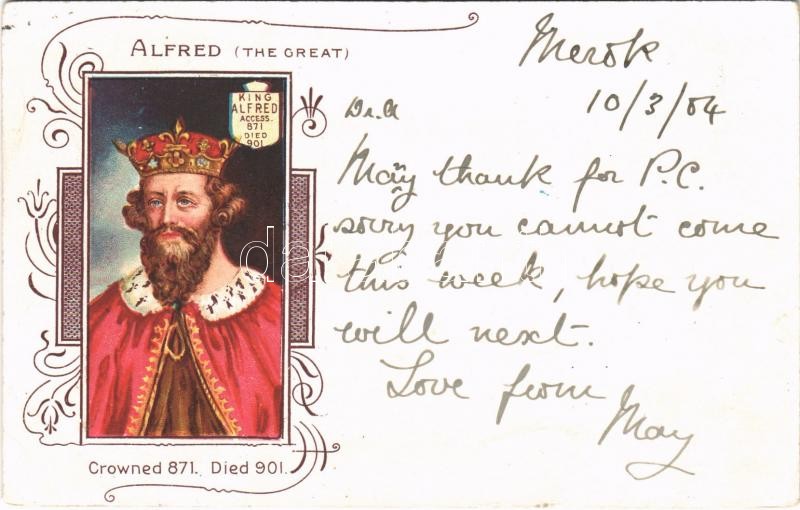 ALFRED (THE GREAT)
KING
ALFRED
ACCESS.
871
DIED
901
Crowned 871. Died 901.
Merok
10/3/04
Dr. A
Many thank for P.C.
sorry you cannot come
this week, hope you
will next.
Love from
May